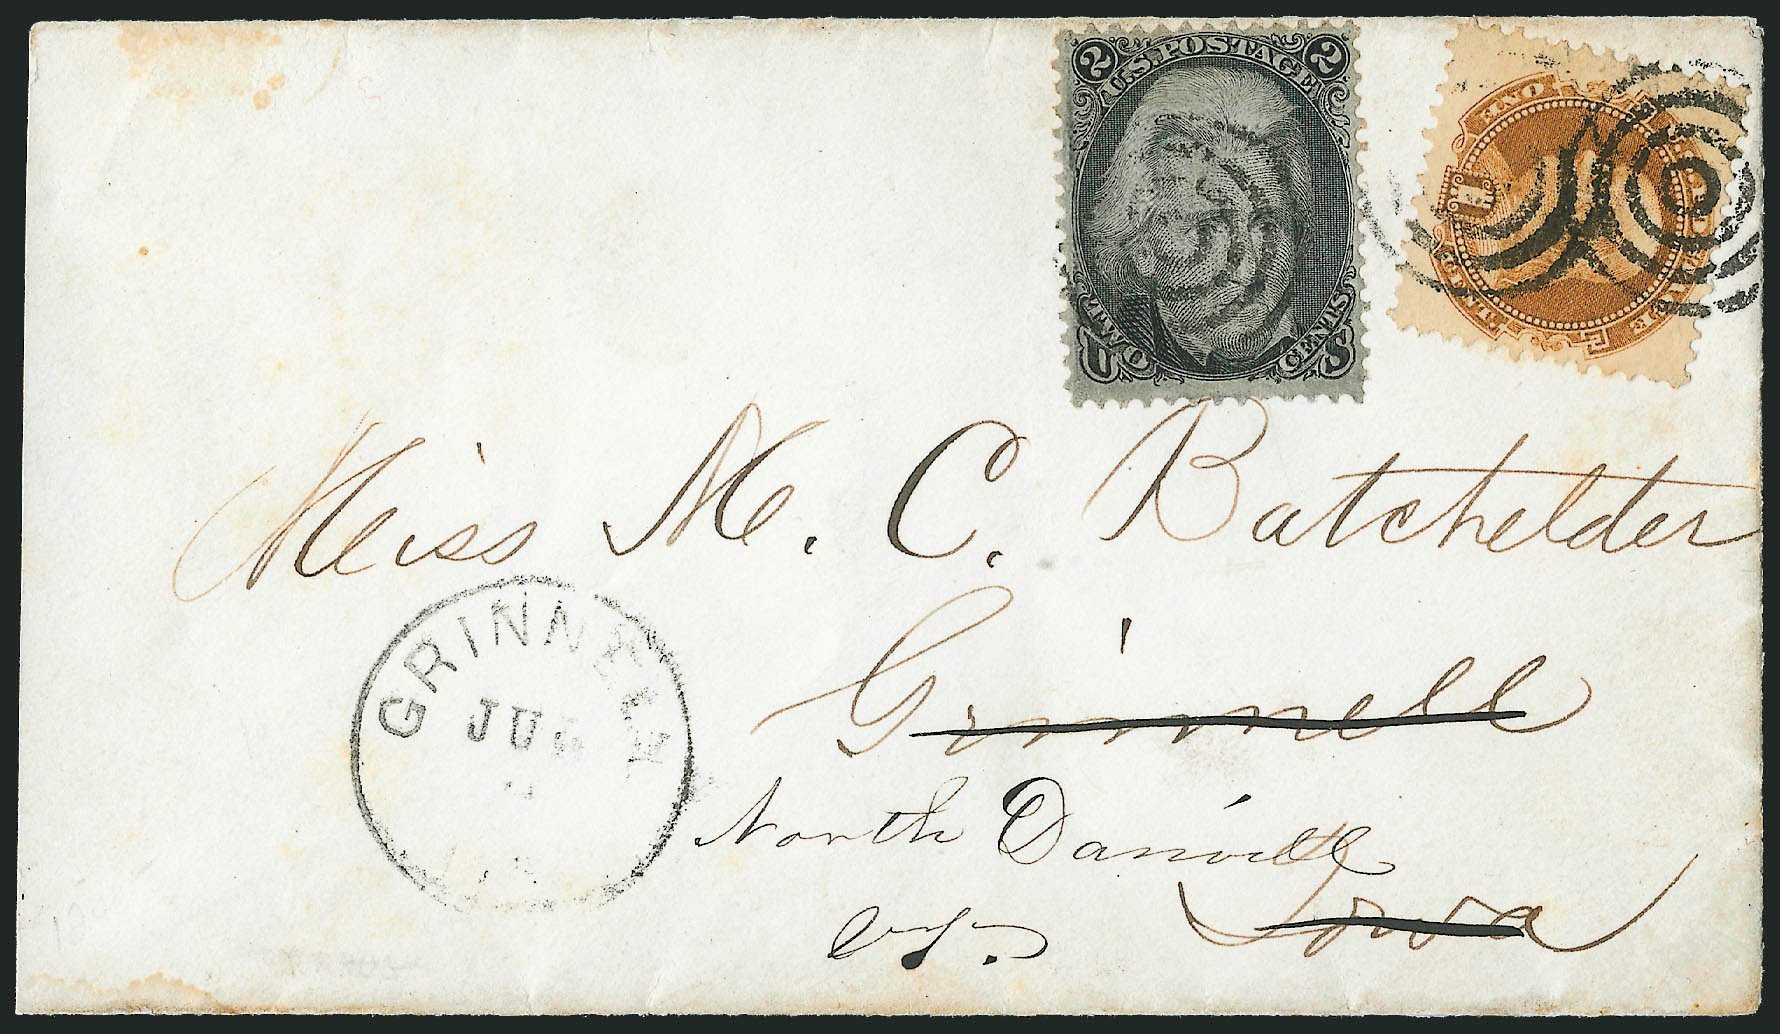 2 U.S. POSTAGE 2
TWO CENTS
U S
ONE
1
Miss M. C. Batchelder
Grinnell
GRINNELL
JU
North Danville
Vt.
Iowa